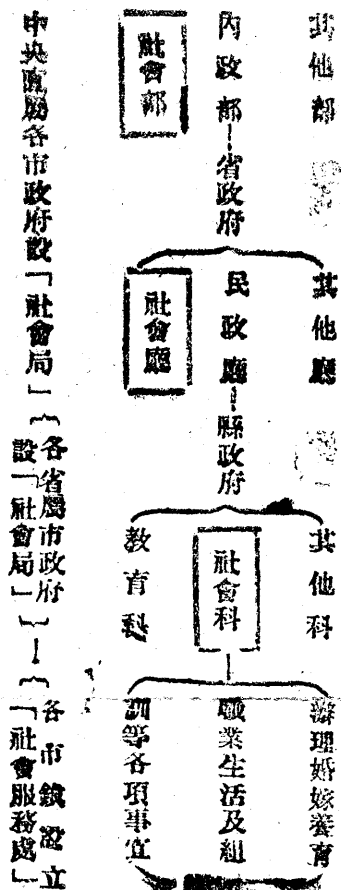 其他部
內政部—省政府
社會部
其他廳
民政廳—縣政府
社會廳
其他科
社會科
教育科
辦理婚嫁養育
職業生活及組
訓等各項事宜
中央直屬各市政府設「社會局」
各省屬市政府
設「社會局」
各市鎮設立
「社會服務處」